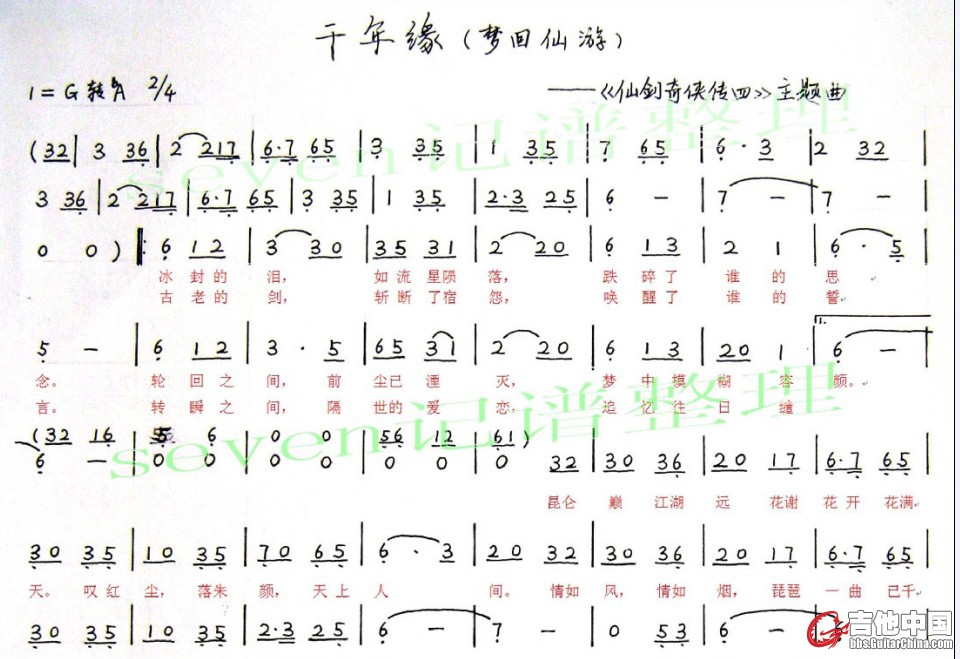 千年缘(梦回仙游)
1=G转A 2/4 ——《仙剑奇侠传四》主题曲
(32| 3 36| 2 217| 6·7 65| 3 35| 1 35| 7 65| 6·3| 2 32|
seven记谱整理
3 36| 2 217| 6·7 65| 3 35| 1 35| 2·3 25| 6 -| 7 -| 7 -|
0 0)|: 6 12| 3 30| 35 31| 2 20| 6 13| 2 1| 6·5|
冰封的 泪, 如流 星陨 落, 跌碎了 谁的 思
古老的 剑, 斩断 了宿 怨, 唤醒了 谁的 誓
5 -| 6 12| 3·5| 65 31| 2 20| 6 13| 20 1| 1. 6 -|
念。 轮回之 间, 前 尘已 湮 灭, 梦中模 糊 容 颜。
言。 转瞬之 间, 隔 世的 爱 恋, 追忆往 日 缠
seven记谱整理
(32 16| 5 6| 0 0| 56 12| 61)
6 -| 0 0| 0 0| 0 0| 0 32| 30 36| 20 17| 6·7 65|
昆仑 巅 江湖 远 花谢 花开 花满
30 35| 10 35| 70 65| 6·3| 20 32| 30 36| 20 17| 6·7 65|
天。 叹红 尘, 落朱 颜, 天上 人 间。 情如 风, 情如 烟, 琵琶 一曲 已千
30 35| 10 35| 2·3 25| 6 -| 7 -| 0 53| 6
吉他中国
bbs.GuitarChina.com